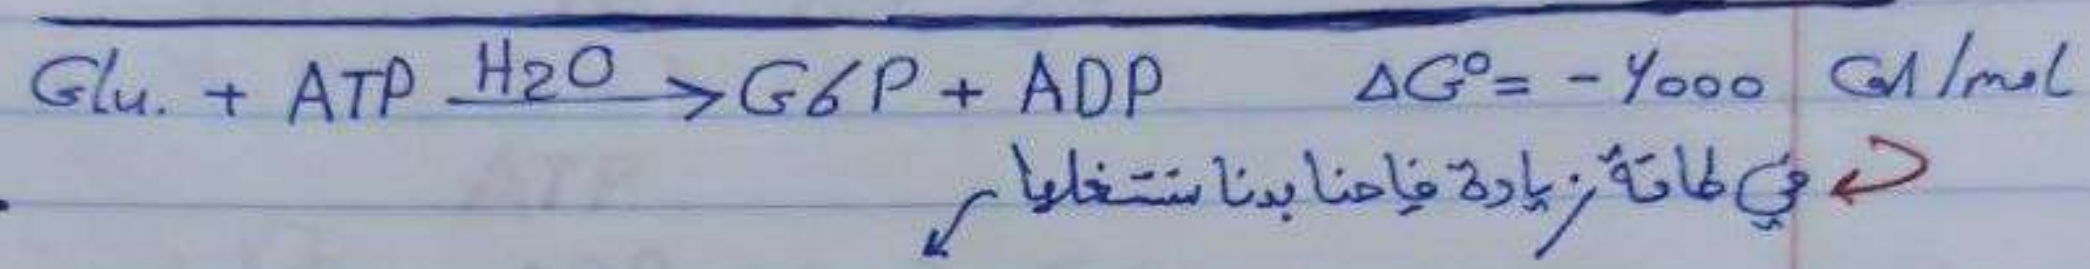 Glu. + ATP H2O → G6P + ADP ΔG° = - 4000 Cal/mol
في طاقة زيادة فاحنا بدنا نستغلها